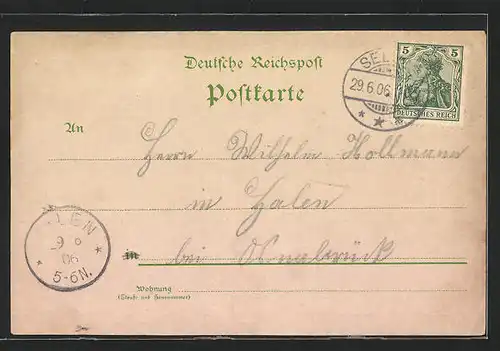 Deutsche Reichspost
Postkarte
SEL
29.6.06
5 5
DEUTSCHES REICH
An
Herrn Wilhelm Hollmann
in Halen
in bei Osnabrück
LEN
06
5-6N.
Wohnung
(Straße und Hausnummer)